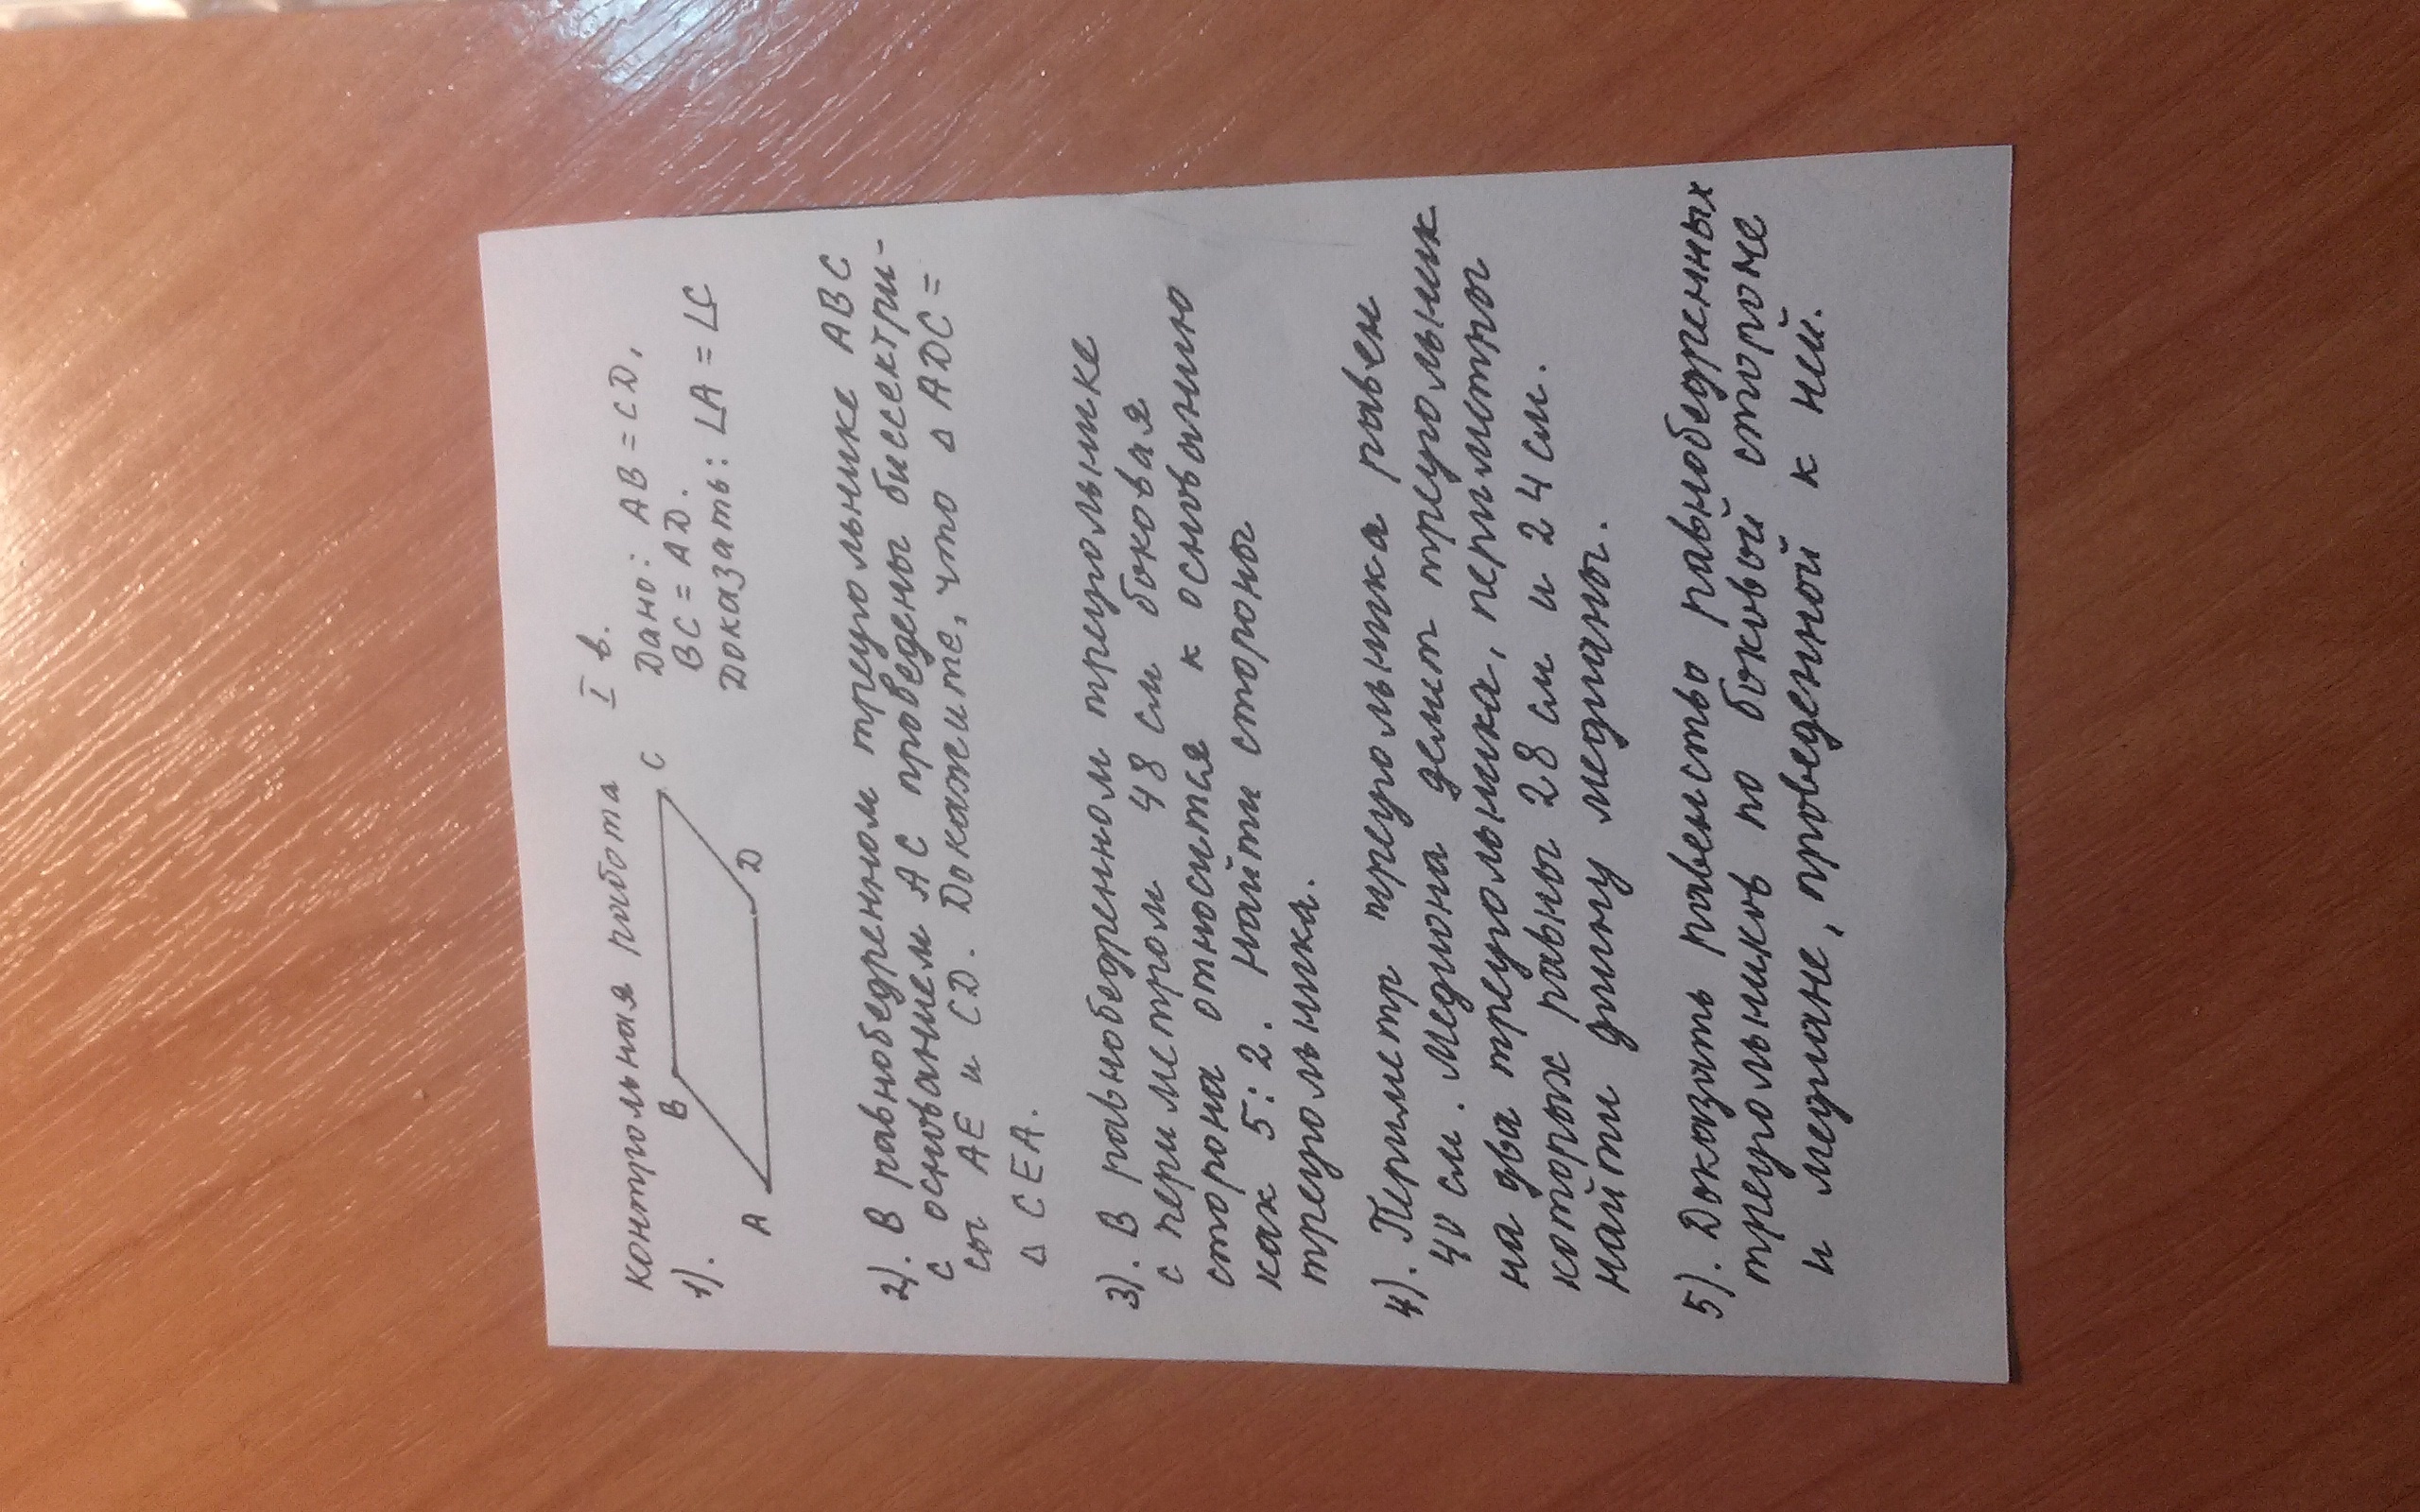 Контрольная работа I в.
1).
B
C
A
D
Дано: AB = CD,
BC = AD.
Доказать: ∠A = ∠C
2). В равнобедренном треугольнике ABC
с основанием AC проведены биссектри-
сы AE и CD. Докажите, что △ ADC =
△ CEA.
3). В равнобедренном треугольнике
с периметром 48 см боковая
сторона относится к основанию
как 5:2. Найти стороны
треугольника.
4). Периметр треугольника равен
40 см. Медиана делит треугольник
на два треугольника, периметры
которых равны 28 см и 24 см.
Найти длину медианы.
5). Доказать равенство равнобедренных
треугольников по боковой стороне
и медиане, проведенной к ней.